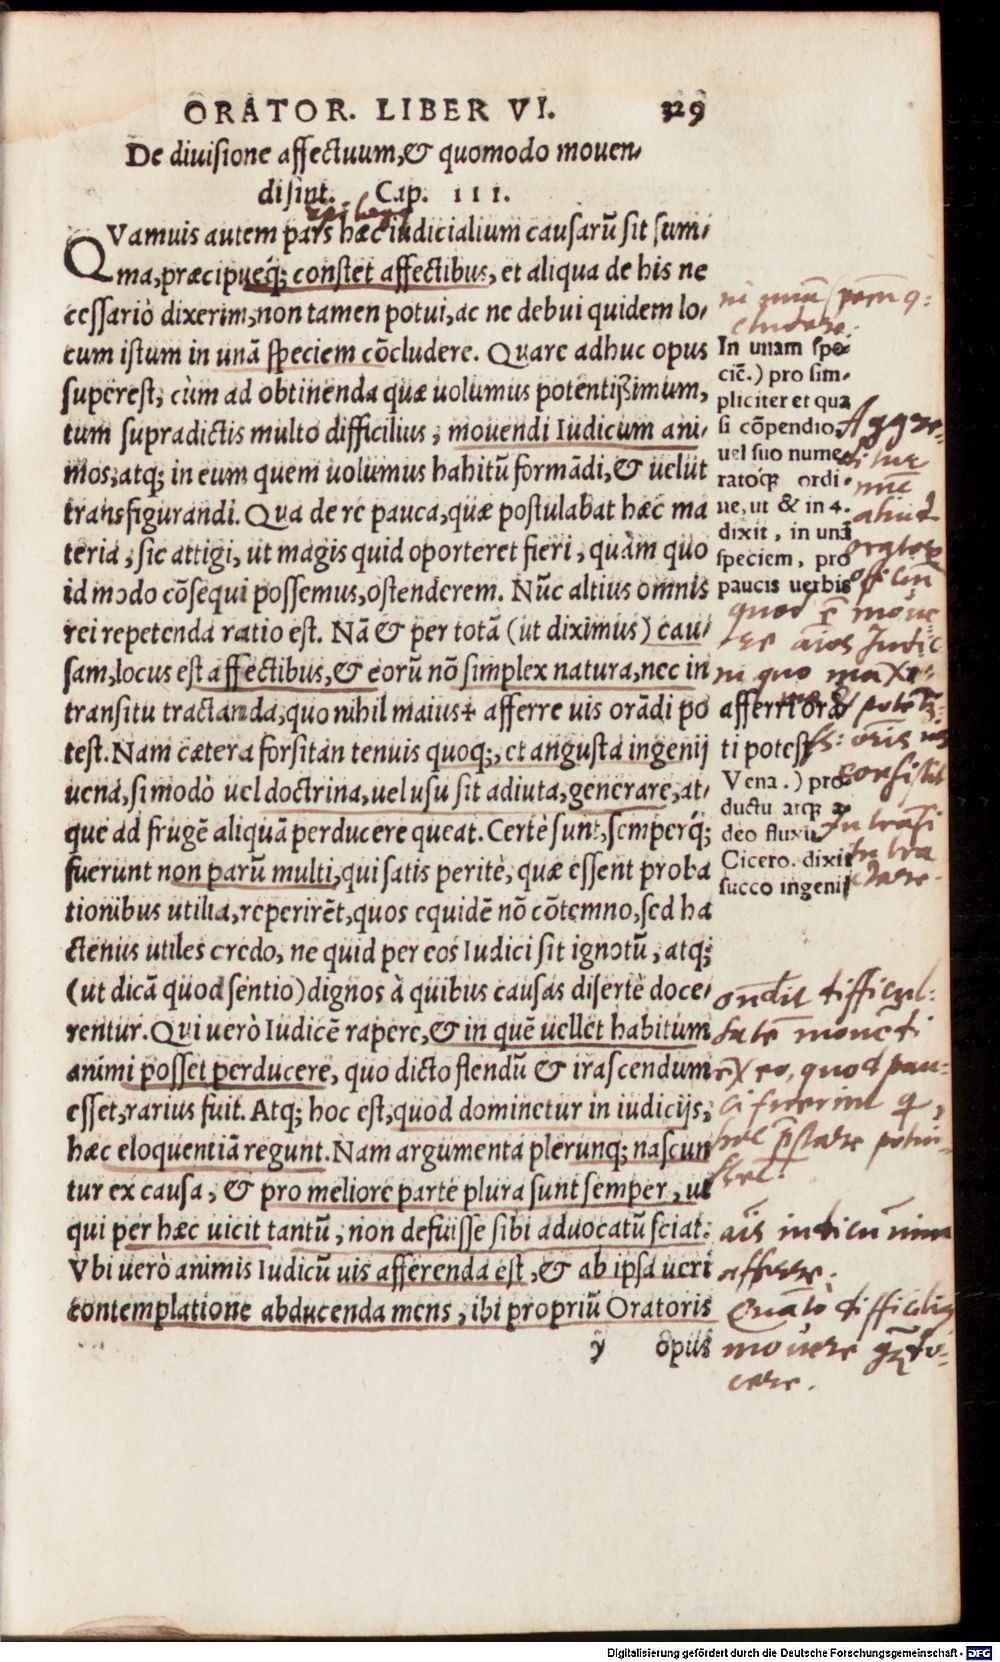 ORATOR. LIBER VI. 329
De diuisione affectuum, & quomodo mouen-
di sint. Cap. III.
QVamuis autem pars hæc iudicialium causarũ sit sum-
ma, præcipueq́; constet affectibus, et aliqua de his ne
cessariò dixerim, non tamen potui, ac ne debui quidem lo-
cum istum in unã speciem cõcludere. Quare adhuc opus
superest, cùm ad obtinenda quæ uolumus potentißimum,
tum supradictis multo difficilius, mouendi Iudicum ani-
mos, atq; in eum quem uolumus habitũ formãdi, & uelut
transfigurandi. Qua de re pauca, quæ postulabat hæc ma
teria, sic attigi, ut magis quid oporteret fieri, quàm quo
id modo cõsequi possemus, ostenderem. Nũc altius omnis
rei repetenda ratio est. Nã & per totã (ut diximus) cau-
sam, locus est affectibus, & eorũ nõ simplex natura, nec in
transitu tractanda, quo nihil maius + afferre uis orãdi po
test. Nam cætera forsitan tenuis quoq;, et angusta ingenij
uena, si modò uel doctrina, uel usu sit adiuta, generare, at-
que ad frugẽ aliquã perducere queat. Certè sunt, semperq́;
fuerunt non parũ multi, qui satis peritè, quæ essent proba
tionibus utilia, reperirẽt, quos equidẽ nõ cõtemno, sed ha
ctenus utiles credo, ne quid per eos Iudici sit ignotũ, atq;
(ut dicã quod sentio) dignos à quibus causas disertè doce-
rentur. Qui uerò Iudicẽ rapere, & in quẽ uellet habitum
animi posset perducere, quo dicto flendũ & irascendum
esset, rarius fuit. Atq; hoc est, quod dominetur in iudicijs,
hæc eloquentiã regunt. Nam argumenta plerunq; nascun
tur ex causa, & pro meliore parte plura sunt semper, ut
qui per hæc uicit tantũ, non defuisse sibi aduocatũ sciat:
Vbi uerò animis Iudicũ uis afferenda est, & ab ipsa ueri
contemplatione abducenda mens, ibi propriũ Oratoris
y opus
In unam spe-
ciẽ.) pro sim-
pliciter et qua
si cõpendio,
uel suo nume-
ratoq́ue ordi-
ne, ut & in 4.
dixit, in unã
speciem, pro
paucis uerbis
afferri orã
ti potest
Vena.) pro
ductu atque a-
deo fluxu
Cicero. dixit
succo ingenij
Aggre-
nunc
aliud
quod ẽ moue
re aĩos Iudic
in quo maxi-
ondit difficul-
tatẽ mouẽdi
ex eo, quod pau-
ci fuerint q
afferre.
Quãto difficilius
mouere do-
cere.